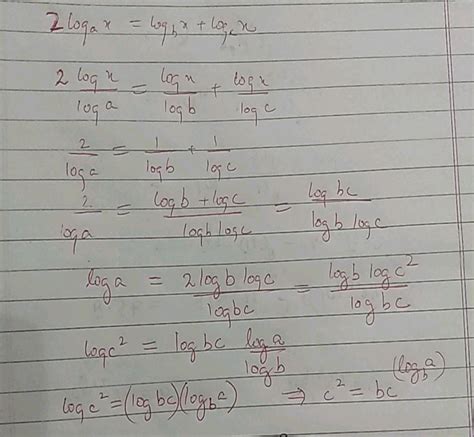 2 log_a x = log_b x + log_c x
2 log x / log a = log x / log b + log x / log c
2 / log a = 1 / log b + 1 / log c
2 / log a = (log b + log c) / (log b log c) = log bc / (log b log c)
log a = 2 log b log c / log bc = log b log c² / log bc
log c² = log bc log a / log b
log c² = (log bc)(log_b a) ⇒ c² = bc^(log_b a)